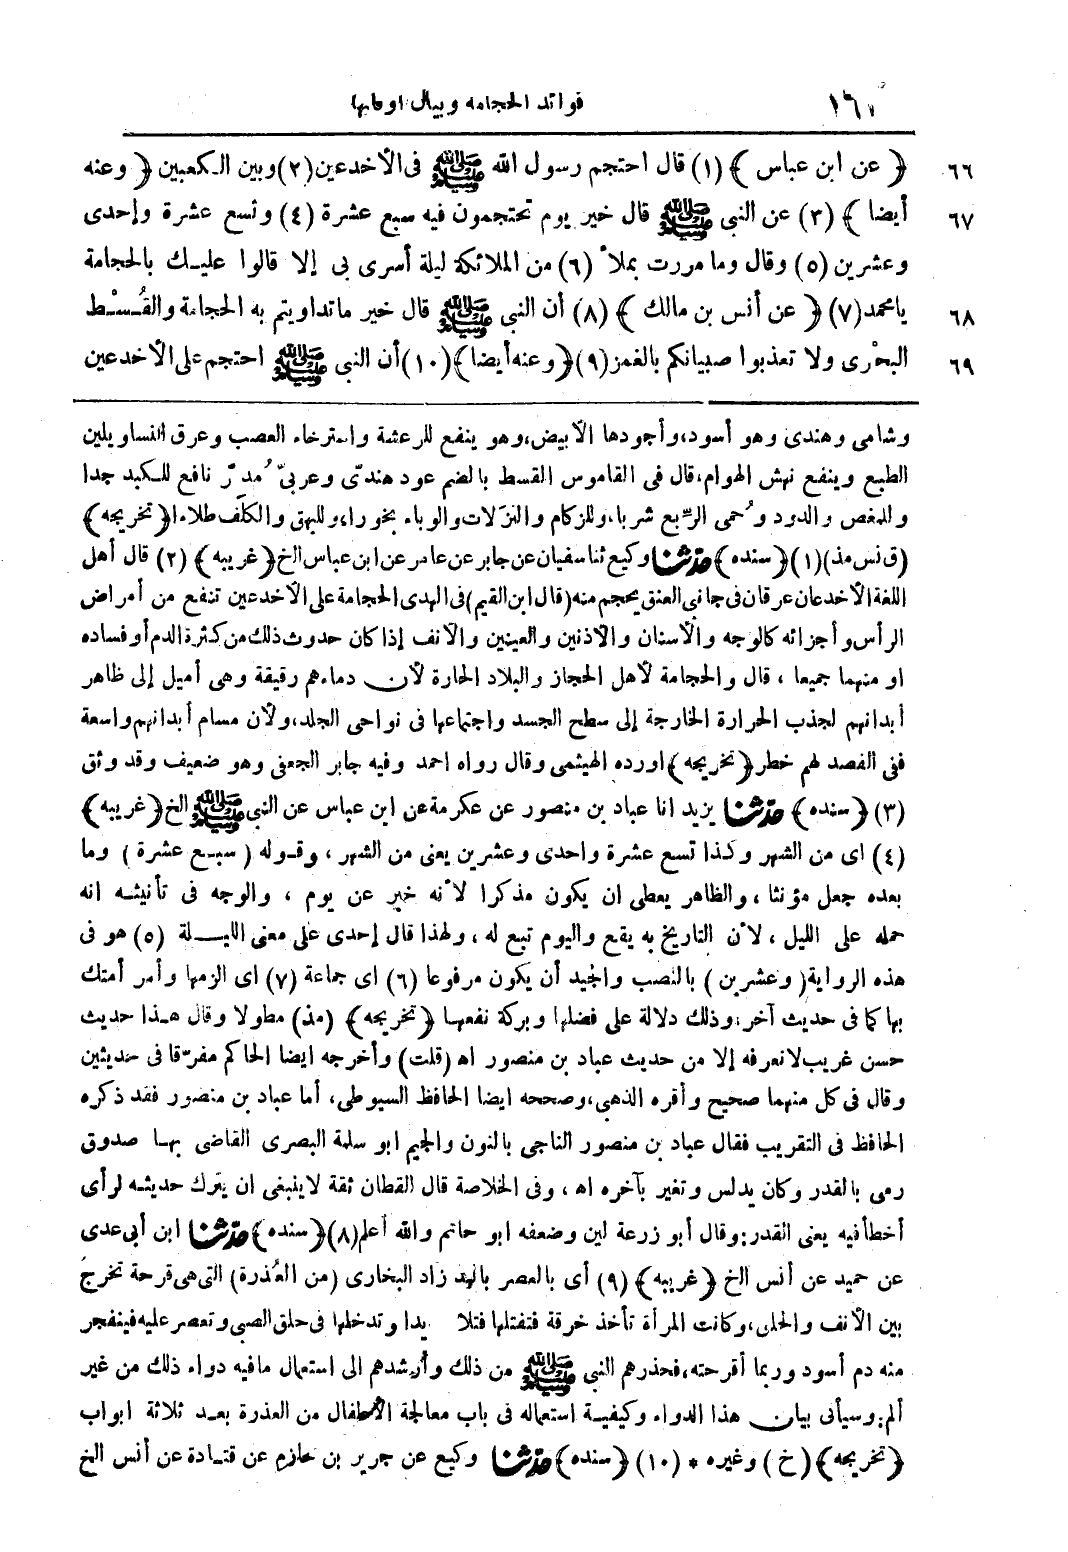 فوائد الحجامة وبيان أوقاتها
٦٦ ﴿ عن ابن عباس ﴾ (١) قال احتجم رسول الله ﷺ فى الأخدعين (٢) وبين الكعبين ﴿ وعنه
٦٧ أيضا ﴾ (٣) عن النبى ﷺ قال خير يوم تحتجمون فيه سبع عشرة (٤) وتسع عشرة وإحدى
وعشرين (٥) وقال وما مررت بملأ (٦) من الملائكة ليلة أسرى بى إلا قالوا عليك بالحجامة
٦٨ يا محمد (٧) ﴿ عن أنس بن مالك ﴾ (٨) أن النبى ﷺ قال خير ما تداويتم به الحجامة والقُسْط
٦٩ البحْرى ولا تعذبوا صبيانكم بالغمز (٩) ﴿ وعنه أيضا ﴾ (١٠) أن النبى ﷺ احتجم على الأخدعين
وشامى وهندى وهو أسود، وأجودها الأبيض، وهو ينفع للرعشة واسترخاء العصب وعرق النسا ويلين
الطبع وينفع نهش الهوام، قال فى القاموس القسط بالضم عود هندىّ وعربىّ مُدرّ نافع للكبد جدا
والمغص والدود وحُمى الرّبع شربا، وللزكام والنزلات والوباء بخورا، وللبهق والكلَف طلاءا ﴿ تخريجه ﴾
(ق نس مذ) (١) ﴿ سنده ﴾ حدّثنا وكيع ثنا سفيان عن جابر عن عامر عن ابن عباس الخ ﴿ غريبه ﴾ (٢) قال أهل
اللغة الأخدعان عرقان فى جانبى العنق يحجم منه (قال ابن القيم) فى الهدى الحجامة على الأخدعين تنفع من أمراض
الرأس وأجزائه كالوجه والأسنان والاذنين والعينين والأنف إذا كان حدوث ذلك من كثرة الدم أو فساده
او منهما جميعا ، قال والحجامة لأهل الحجاز والبلاد الحارة لأن دماءهم رقيقة وهى أميل إلى ظاهر
أبدانهم لجذب الحرارة الخارجة إلى سطح الجسد واجتماعها فى نواحى الجلد، ولأن مسام أبدانهم واسعة
ففى الفصد لهم خطر ﴿ تخريجه ﴾ اورده الهيثمى وقال رواه احمد وفيه جابر الجعفى وهو ضعيف وقد وثق
(٣) ﴿ سنده ﴾ حدّثنا يزيد انا عباد بن منصور عن عكرمة عن ابن عباس عن النبى ﷺ الخ ﴿ غريبه ﴾
(٤) اى من الشهر وكذا تسع عشرة واحدى وعشرين يعنى من الشهر ، وقوله ( سبع عشرة ) وما
بعده جعل مؤنثا ، والظاهر يعطى ان يكون مذكرا لأنه خبر عن يوم ، والوجه فى تأنيثه انه
حمله على الليل ، لأن التاريخ به يقع واليوم تبع له ، ولهذا قال إحدى على معنى الليلة (٥) هو فى
هذه الرواية ( وعشرين ) بالنصب والجيد أن يكون مرفوعا (٦) اى جماعة (٧) اى الزمها وأمر أمتك
بها كما فى حديث آخر، وذلك دلالة على فضلها وبركة نفعها ﴿ تخريجه ﴾ (مذ) مطولا وقال هذا حديث
حسن غريب لا نعرفه إلا من حديث عباد بن منصور اه (قلت) وأخرجه ايضا الحاكم مفرّقا فى حديثين
وقال فى كل منهما صحيح وأقره الذهبى، وصححه ايضا الحافظ السيوطى، أما عباد بن منصور فقد ذكره
الحافظ فى التقريب فقال عباد بن منصور الناجى بالنون والجيم ابو سلمة البصرى القاضى بها صدوق
رمى بالقدر وكان يدلس وتغير بآخره اه ، وفى الخلاصة قال القطان ثقة لا ينبغى ان يترك حديثه لرأى
أخطأ فيه يعنى القدر، وقال أبو زرعة لين وضعفه ابو حاتم والله أعلم (٨) ﴿ سنده ﴾ حدّثنا ابن أبى عدى
عن حميد عن أنس الخ ﴿ غريبه ﴾ (٩) أى بالعصر باليد زاد البخارى (من العُذرة) التى هى قرحة تخرج
بين الأنف والحلق، وكانت المرأة تأخذ خرقة فتفتلها فتلا يدا وتدخلها فى حلق الصبى وتعصر عليه فينفجر
منه دم أسود وربما أقرحته، فحذرهم النبى ﷺ من ذلك وأرشدهم الى استعمال ما فيه دواء ذلك من غير
ألم، وسيأتى بيان هذا الدواء وكيفية استعماله فى باب معالجة الأطفال من العذرة بعد ثلاثة ابواب
﴿ تخريجه ﴾ (خ) وغيره * (١٠) ﴿ سنده ﴾ حدّثنا وكيع عن جرير بن حازم عن قتادة عن أنس الخ